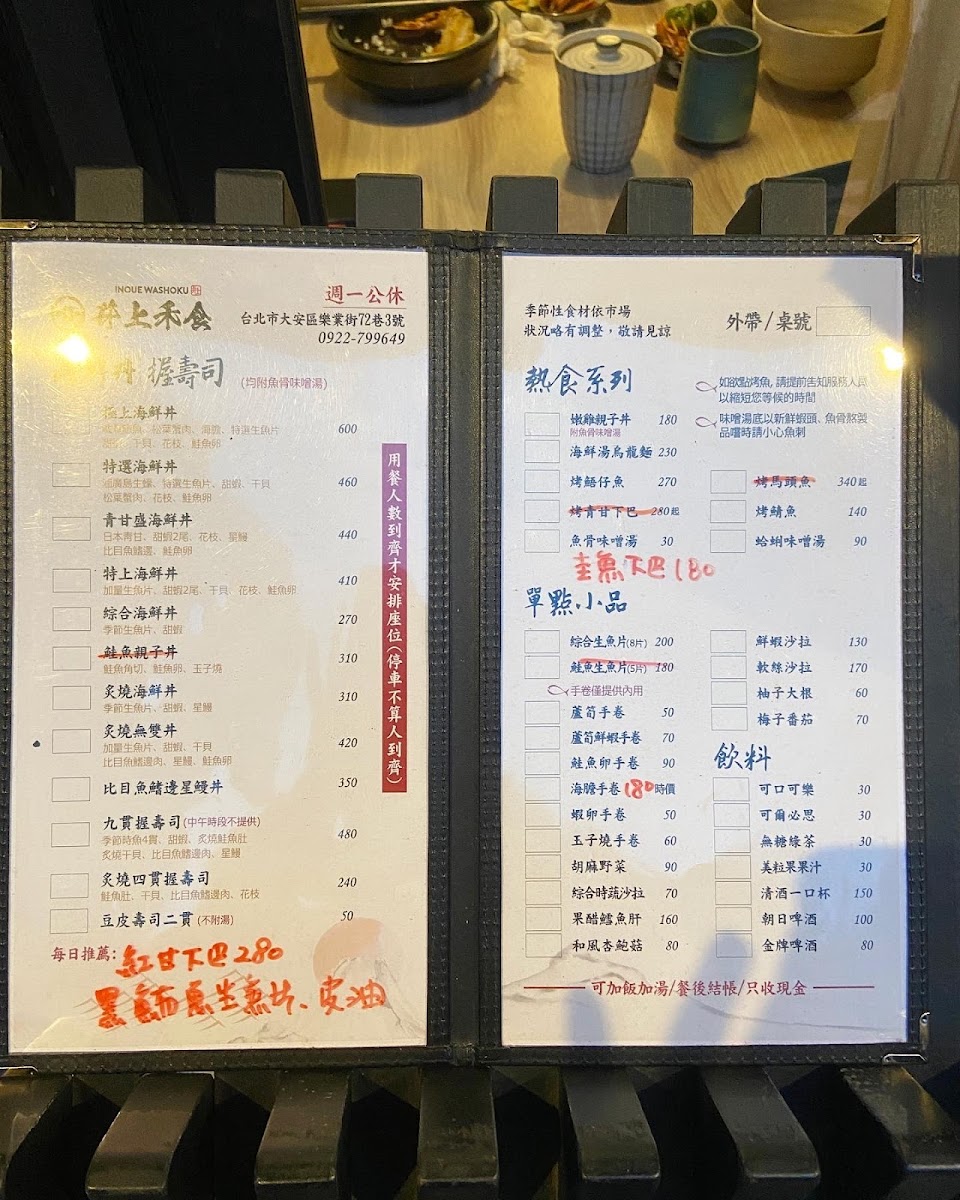 INOUE WASHOKU
井上禾食
週一公休
台北市大安區樂業街72巷3號
0922-799649
丼 握壽司 (均附魚骨味噌湯)
極上海鮮丼 600
松葉蟹肉、海膽、特選生魚片
干貝、花枝、鮭魚卵
特選海鮮丼 460
特選生魚片、甜蝦、干貝
松葉蟹肉、花枝、鮭魚卵
青甘盛海鮮丼 440
日本青甘、甜蝦2尾、花枝、星鰻
比目魚鰭邊、鮭魚卵
特上海鮮丼 410
加量生魚片、甜蝦2尾、干貝、花枝、鮭魚卵
綜合海鮮丼 270
季節生魚片、甜蝦
鮭魚親子丼 310
鮭魚角切、鮭魚卵、玉子燒
炙燒海鮮丼 310
季節生魚片、甜蝦、星鰻
炙燒無雙丼 420
加量生魚片、甜蝦、干貝
比目魚鰭邊肉、星鰻、鮭魚卵
比目魚鰭邊星鰻丼 350
九貫握壽司(中午時段不提供) 480
季節時魚4貫、甜蝦、炙燒鮭魚肚
炙燒干貝、比目魚鰭邊肉、星鰻
炙燒四貫握壽司 240
鮭魚肚、干貝、比目魚鰭邊肉、花枝
豆皮壽司二貫(不附湯) 50
每日推薦: 紅甘下巴280
生魚片、皮油
用餐人數到齊才安排座位(停車不算人到齊)
季節性食材依市場
狀況略有調整，敬請見諒
外帶/桌號
熱食系列
如欲點烤魚,請提前告知服務人員
以縮短您等候的時間
味噌湯底以新鮮蝦頭、魚骨熬製
品嚐時請小心魚刺
嫩雞親子丼 180
附魚骨味噌湯
海鮮湯烏龍麵 230
烤鯃仔魚 270
烤馬頭魚 340起
烤青甘下巴 280起
烤鯖魚 140
魚骨味噌湯 30
蛤蜊味噌湯 90
圭魚下巴180
單點小品
綜合生魚片(8片) 200
鮭魚生魚片(5片) 180
手卷僅提供內用
蘆筍手卷 50
蘆筍鮮蝦手卷 70
鮭魚卵手卷 90
海膽手卷 180 時價
蝦卵手卷 50
玉子燒手卷 60
胡麻野菜 90
綜合時蔬沙拉 70
果醋鱈魚肝 160
和風杏鮑菇 80
鮮蝦沙拉 130
軟絲沙拉 170
柚子大根 60
梅子番茄 70
飲料
可口可樂 30
可爾必思 30
無糖綠茶 30
美粒果果汁 30
清酒一口杯 150
朝日啤酒 100
金牌啤酒 80
可加飯加湯/餐後結帳/只收現金